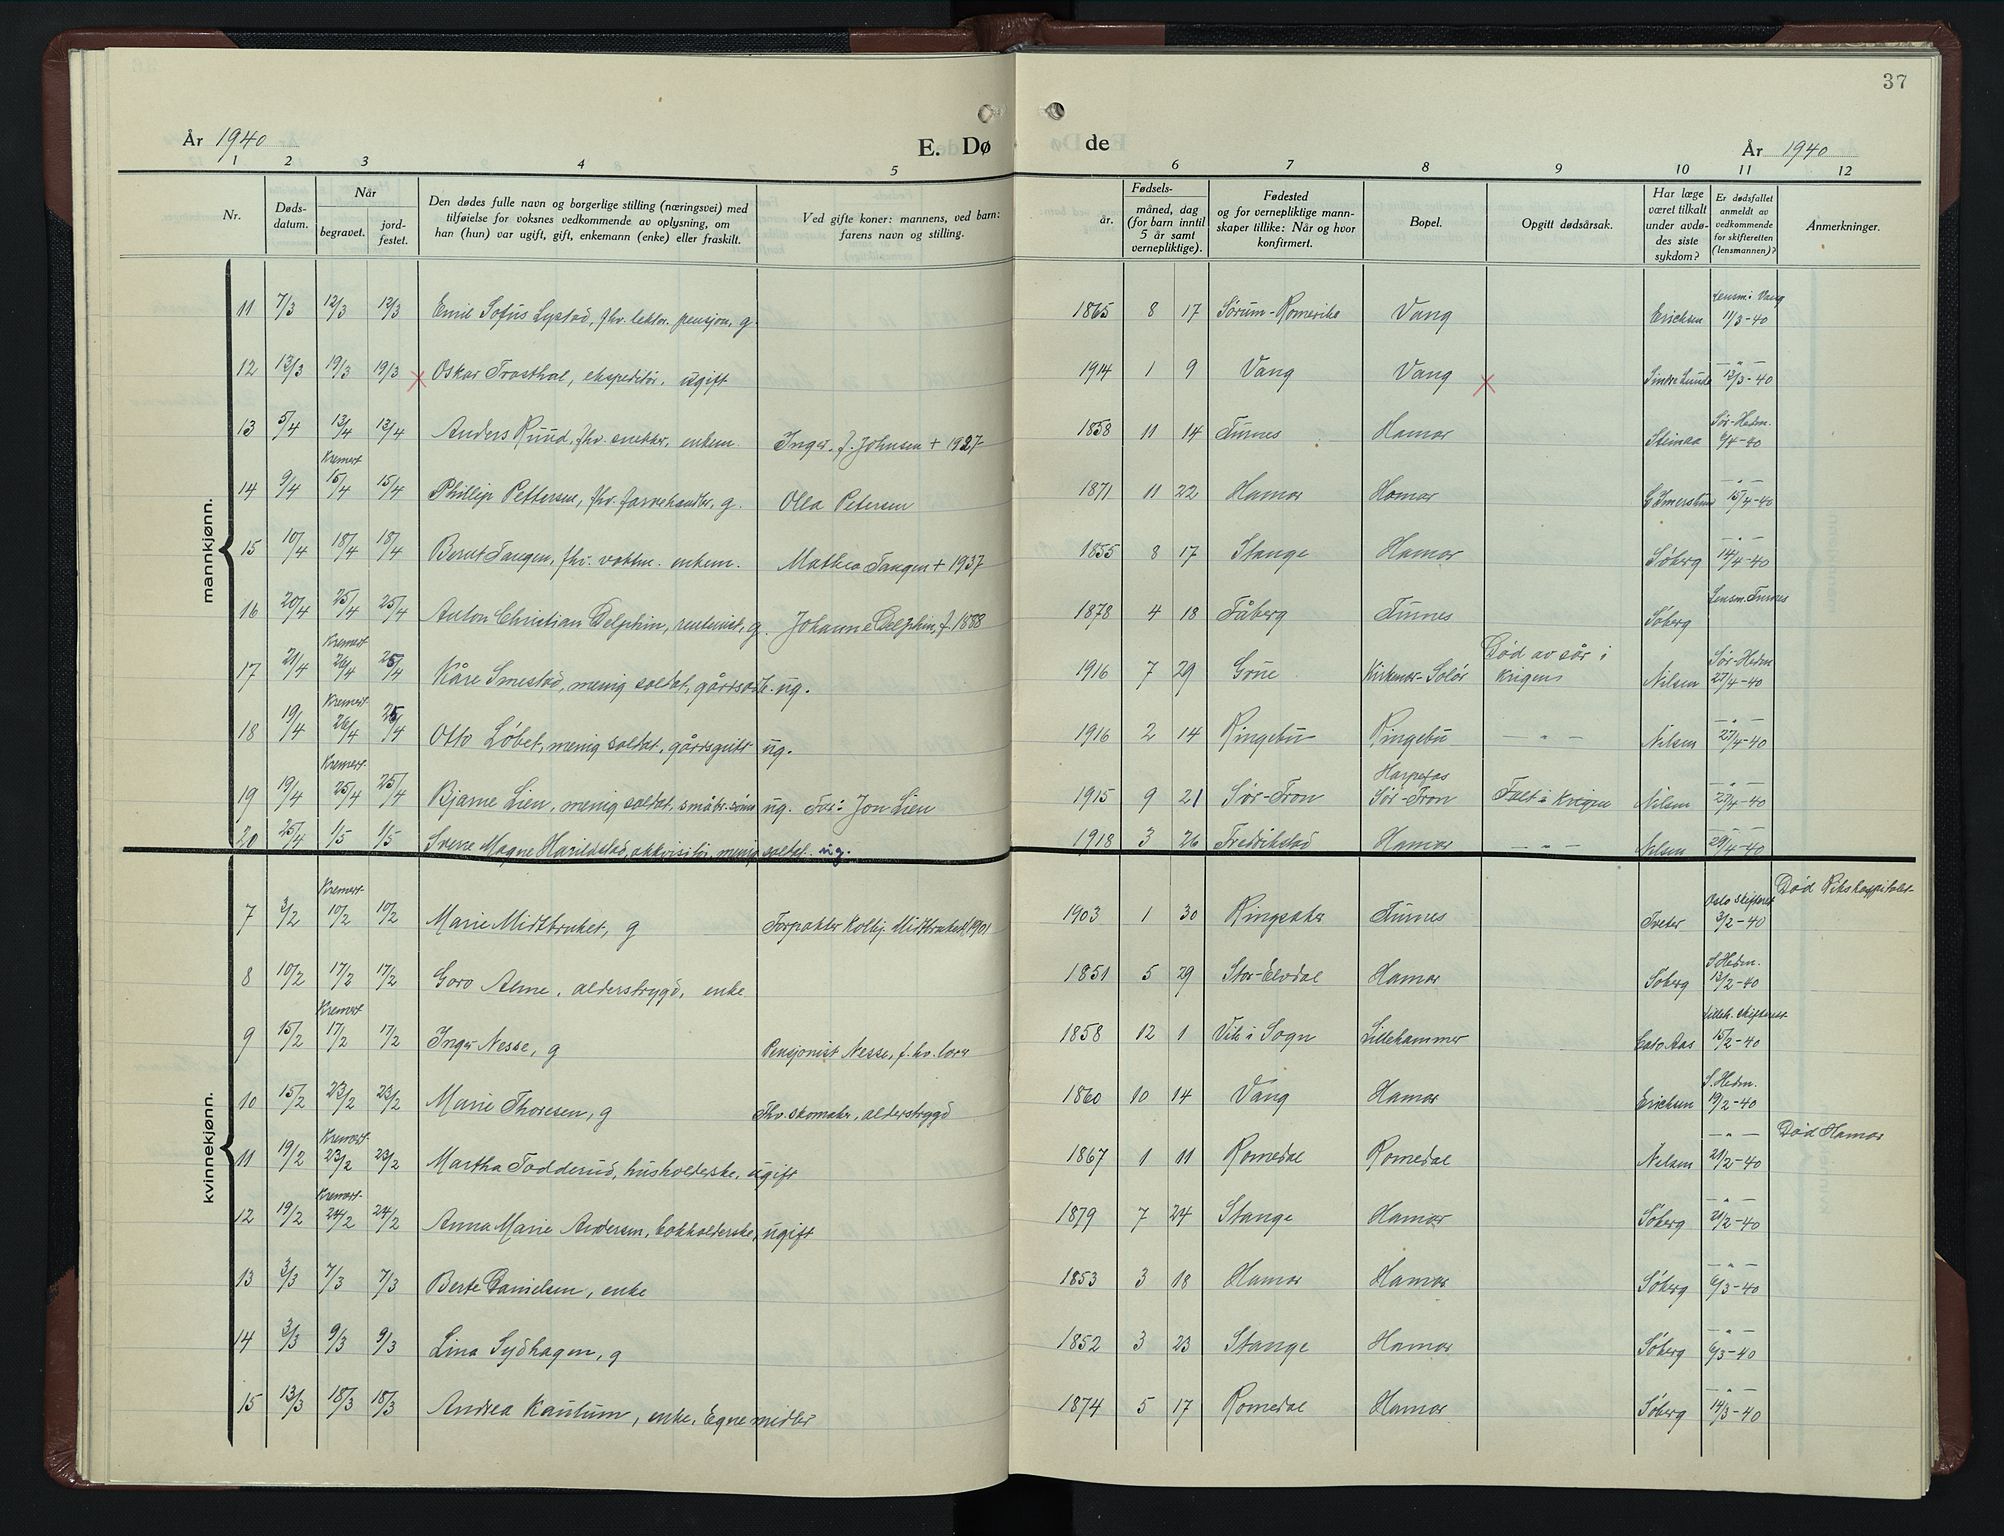 37
År 1940 E. Dø de År 1940
1 2 3 4 5 6 7 8 9 10 11 12
Nr. Døds-datum. Når begravet. jord-festet. Den dødes fulle navn og borgerlige stilling (næringsvei) med tilføielse for voksnes vedkommende av oplysning, om han (hun) var ugift, gift, enkemann (enke) eller fraskilt. Ved gifte koner: mannens, ved barn: farens navn og stilling. Fødsels- år. måned, dag (for barn inntil 5 år samt vernepliktige). Fødested og for vernepliktige mannskaper tillike: Når og hvor konfirmert. Bopel. Opgitt dødsårsak. Har læge været tilkalt under avdødes siste sykdom? Er dødsfallet anmeldt av vedkommende for skifteretten (lensmannen)? Anmerkninger.
mannkjønn.
11 7/3 12/3 12/3 Emil Sofus Lystad, fhv. lektor. pensjon, g. 1865 8 17 Sørum-Romerike Vang Erichsen Lensm. i Vang 11/3-40
12 13/3 19/3 19/3 Oskar Trosthol, ekspeditør, ugift 1914 1 9 Vang Vang Sindre Lunde -"- 12/3-40
13 5/4 13/4 13/4 Anders Ruud, fhv. snekker, enkem. Inger, f. Johnsen + 1927 1858 11 14 Furnes Hamar Steinaa Sør-Hedm. 6/4-40
14 9/4 Kremert 15/4 15/4 Phillip Pettersen, fhv. farvehandler, g. Olla Petersen 1871 11 22 Hamar Hamar -"- 15/4-40
15 10/4 18/4 18/4 Bernt Tangen, fhv. vaktm. enkem. Mathea Tangen + 1937 1855 8 17 Stange Hamar Søberg -"- 14/4-40
16 20/4 25/4 25/4 Anton Christian Delphin, rentenist, g. Johanne Delphin, f. 1888 1878 4 18 Fåberg Furnes Søberg Lensm. Furnes
17 21/4 Kremert 26/4 25/4 Kåre Smestad, menig soldat, gårdsarb. ug. 1916 7 29 Grue Kirkenær-Solør Død av sår i krigen Nilsen Sør-Hedm 27/4-40
18 19/4 Kremert 26/4 25/4 Otto Løbet, menig soldat, gårdsgutt ug. 1916 2 14 Ringebu Ringebu -"- Nilsen -"- 27/4-40
19 19/4 Kremert 25/4 25/4 Bjarne Lien, menig soldat, småbr.sønn ug. Far: Jon Lien 1915 9 21 Sør-Fron Harpefos Sør-Fron Falt i krigen Nilsen -"- 27/4-40
20 25/4 1/5 1/5 Sverre Magne Harildstad, akkvisitør, menig soldat. ug. 1918 3 26 Fredrikstad Hamar -"- Nilsen 29/4-40
kvinnekjønn.
7 3/2 Kremert 10/2 10/2 Marie Midtbruket, g Forpakter Kolbj. Midtbruket f. 1901 1903 1 30 Ringsaker Furnes Tveter Oslo skifteret 3/2-40 Død Rikshospitalet
8 10/2 17/2 17/2 Goro Alme, alderstrygd, enke 1851 5 29 Stor-Elvdal Hamar Søberg S. Hedm. 13/2-40
9 15/2 Kremert 17/2 17/2 Inger Nesse, g Pensjonist Nesse, f.hv. lærer 1858 12 1 Vik i Sogn Lillehammer Cato Aas Lilleh. skifteret 15/2-40
10 15/2 23/2 23/2 Marie Thoresen, g Fhv. skomaker, alderstrygd 1860 10 14 Vang Hamar Erichsen S. Hedm. 19/2-40
11 19/2 Kremert 23/2 23/2 Martha Todderud, husholderske, ugift 1867 1 11 Romedal Romedal Nilsen -"- 21/2-40 Død Hamar
12 19/2 Kremert 24/2 24/2 Anna Marie Andersen, bokholderske, ugift 1879 7 24 Stange Hamar Søberg -"- 21/2-40
13 3/3 7/3 7/3 Berte Danielsen, enke 1853 3 18 Hamar Hamar Søberg -"- 6/3-40
14 3/3 9/3 9/3 Lina Sydhagen, g 1852 3 23 Stange Hamar Søberg -"- 6/3-40
15 13/3 18/3 18/3 Andrea Kaulum, enke, Egne midler 1874 5 17 Romedal Hamar Søberg -"- 14/3-40